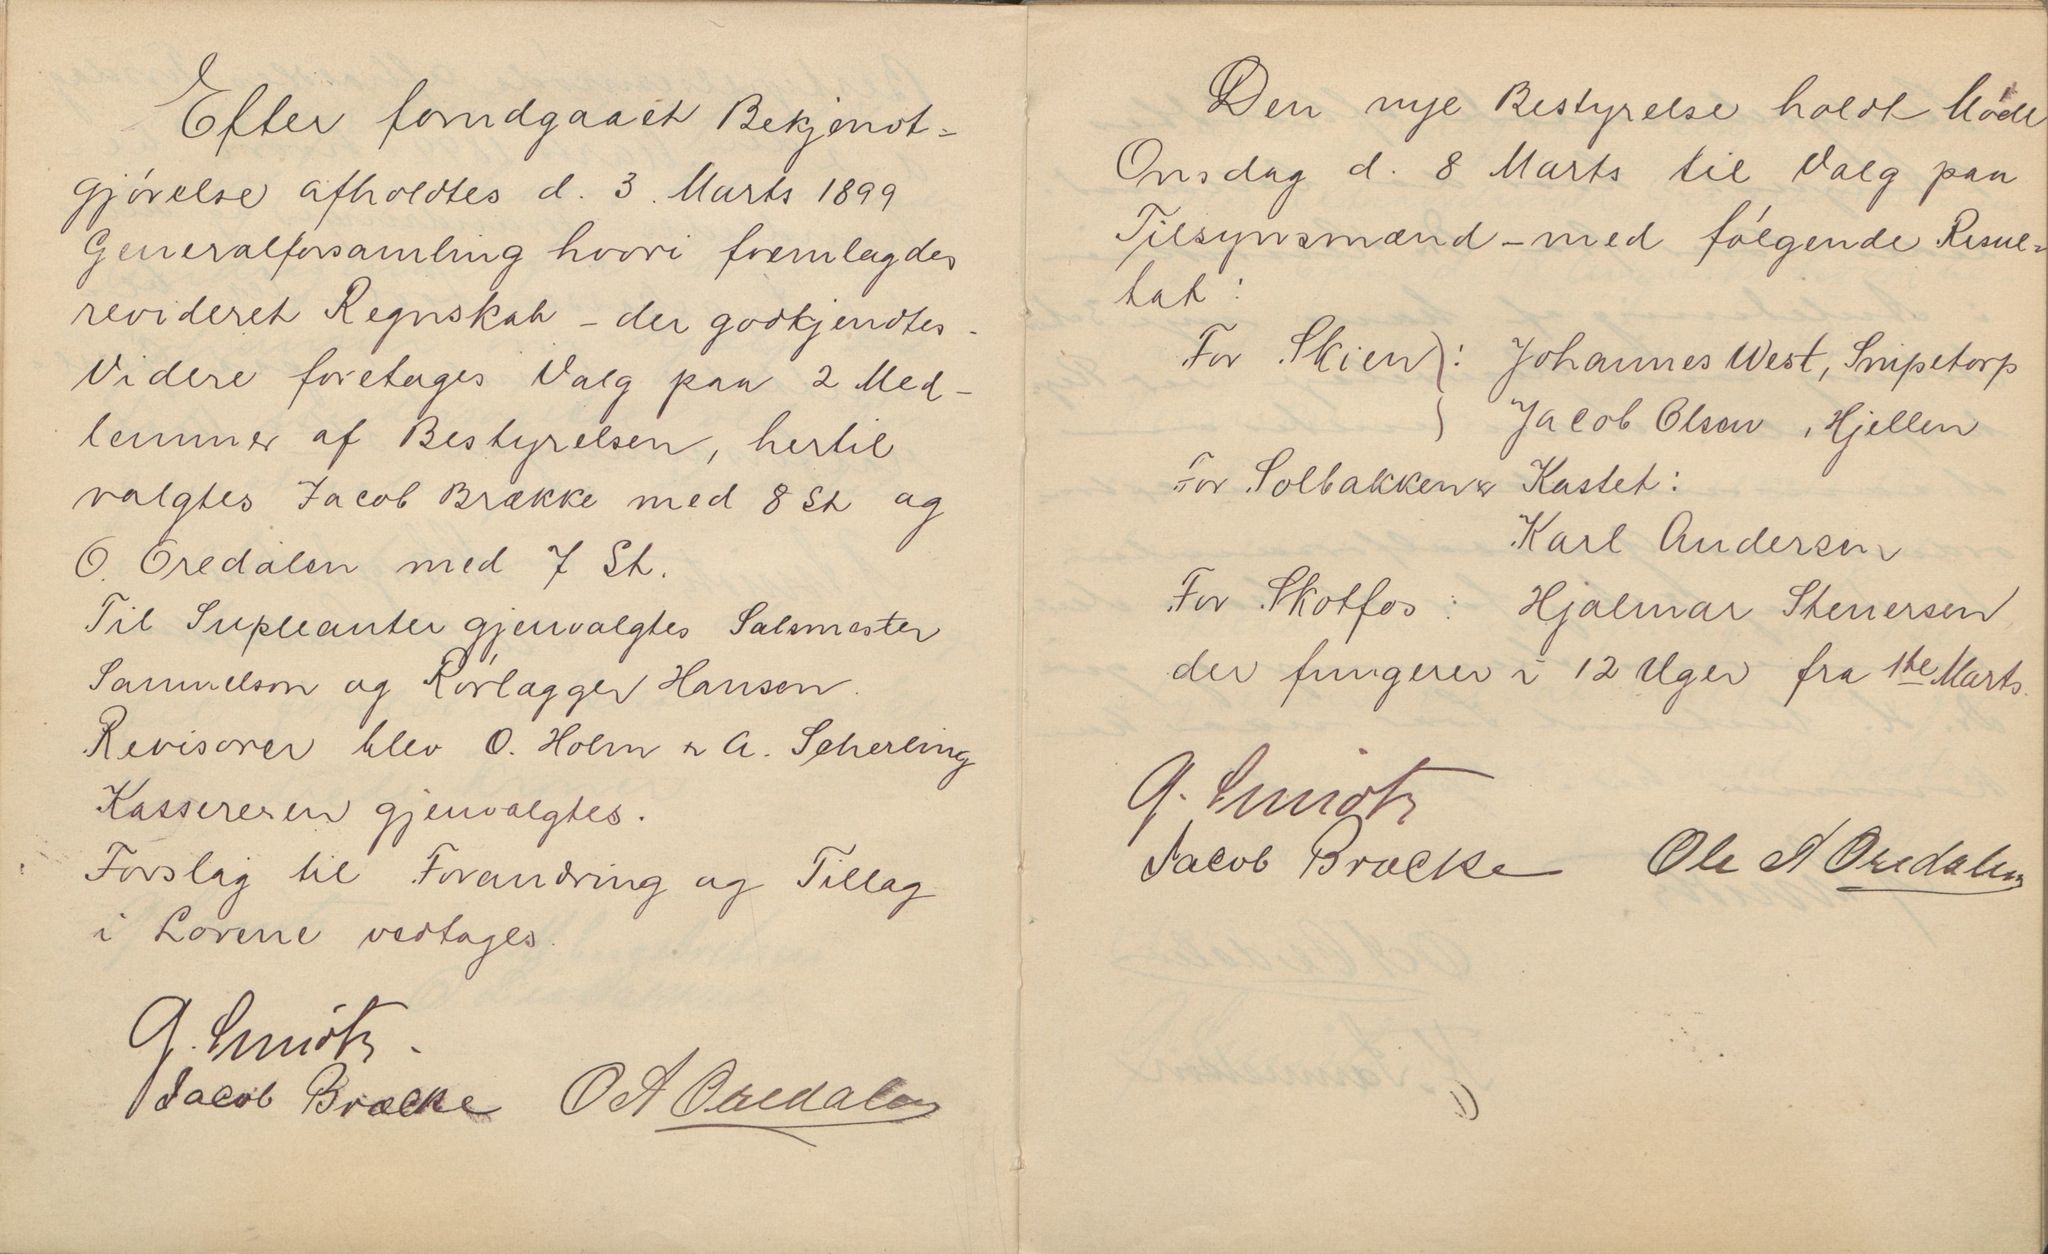 Efter forudgaaet Bekjendt=
gjørelse afholdtes d. 3. Marts 1899
Generalforsamling hvori fremlagdes
revideret Regnskab – der godkjendtes –
Videre foretages Valg paa 2 Med–
lemmer af Bestyrelsen, hertil
valgtes Jacob Brække med 8 St og
O. Oredalen med 7 St.
Til Supleanter gjenvalgtes Salsmester
Samuelson og Rørlægger Hansen.
Revisorer blev O. Holm & A. Scherling
Kassereren gjenvalgtes.
Forslag til Forandring og Tillæg
i Lovene vedtages.
G. Smidth.
Jacob Brække O A Oredalen
Den nye Bestyrelse holdt Møde
Onsdag d. 8 Marts til Valg paa
Tilsynsmænd – med følgende Resul=
tat:
For Skien : Johannes West, Snipetorp
Jacob Olsen, Hjellen
For Solbakken & Kastet:
Karl Andersen
For Skotfos : Hjalmar Stenersen
der fungerer i 12 Uger fra 1ste Marts.
G. Smidth
Jacob Brække Ole A Oredalen